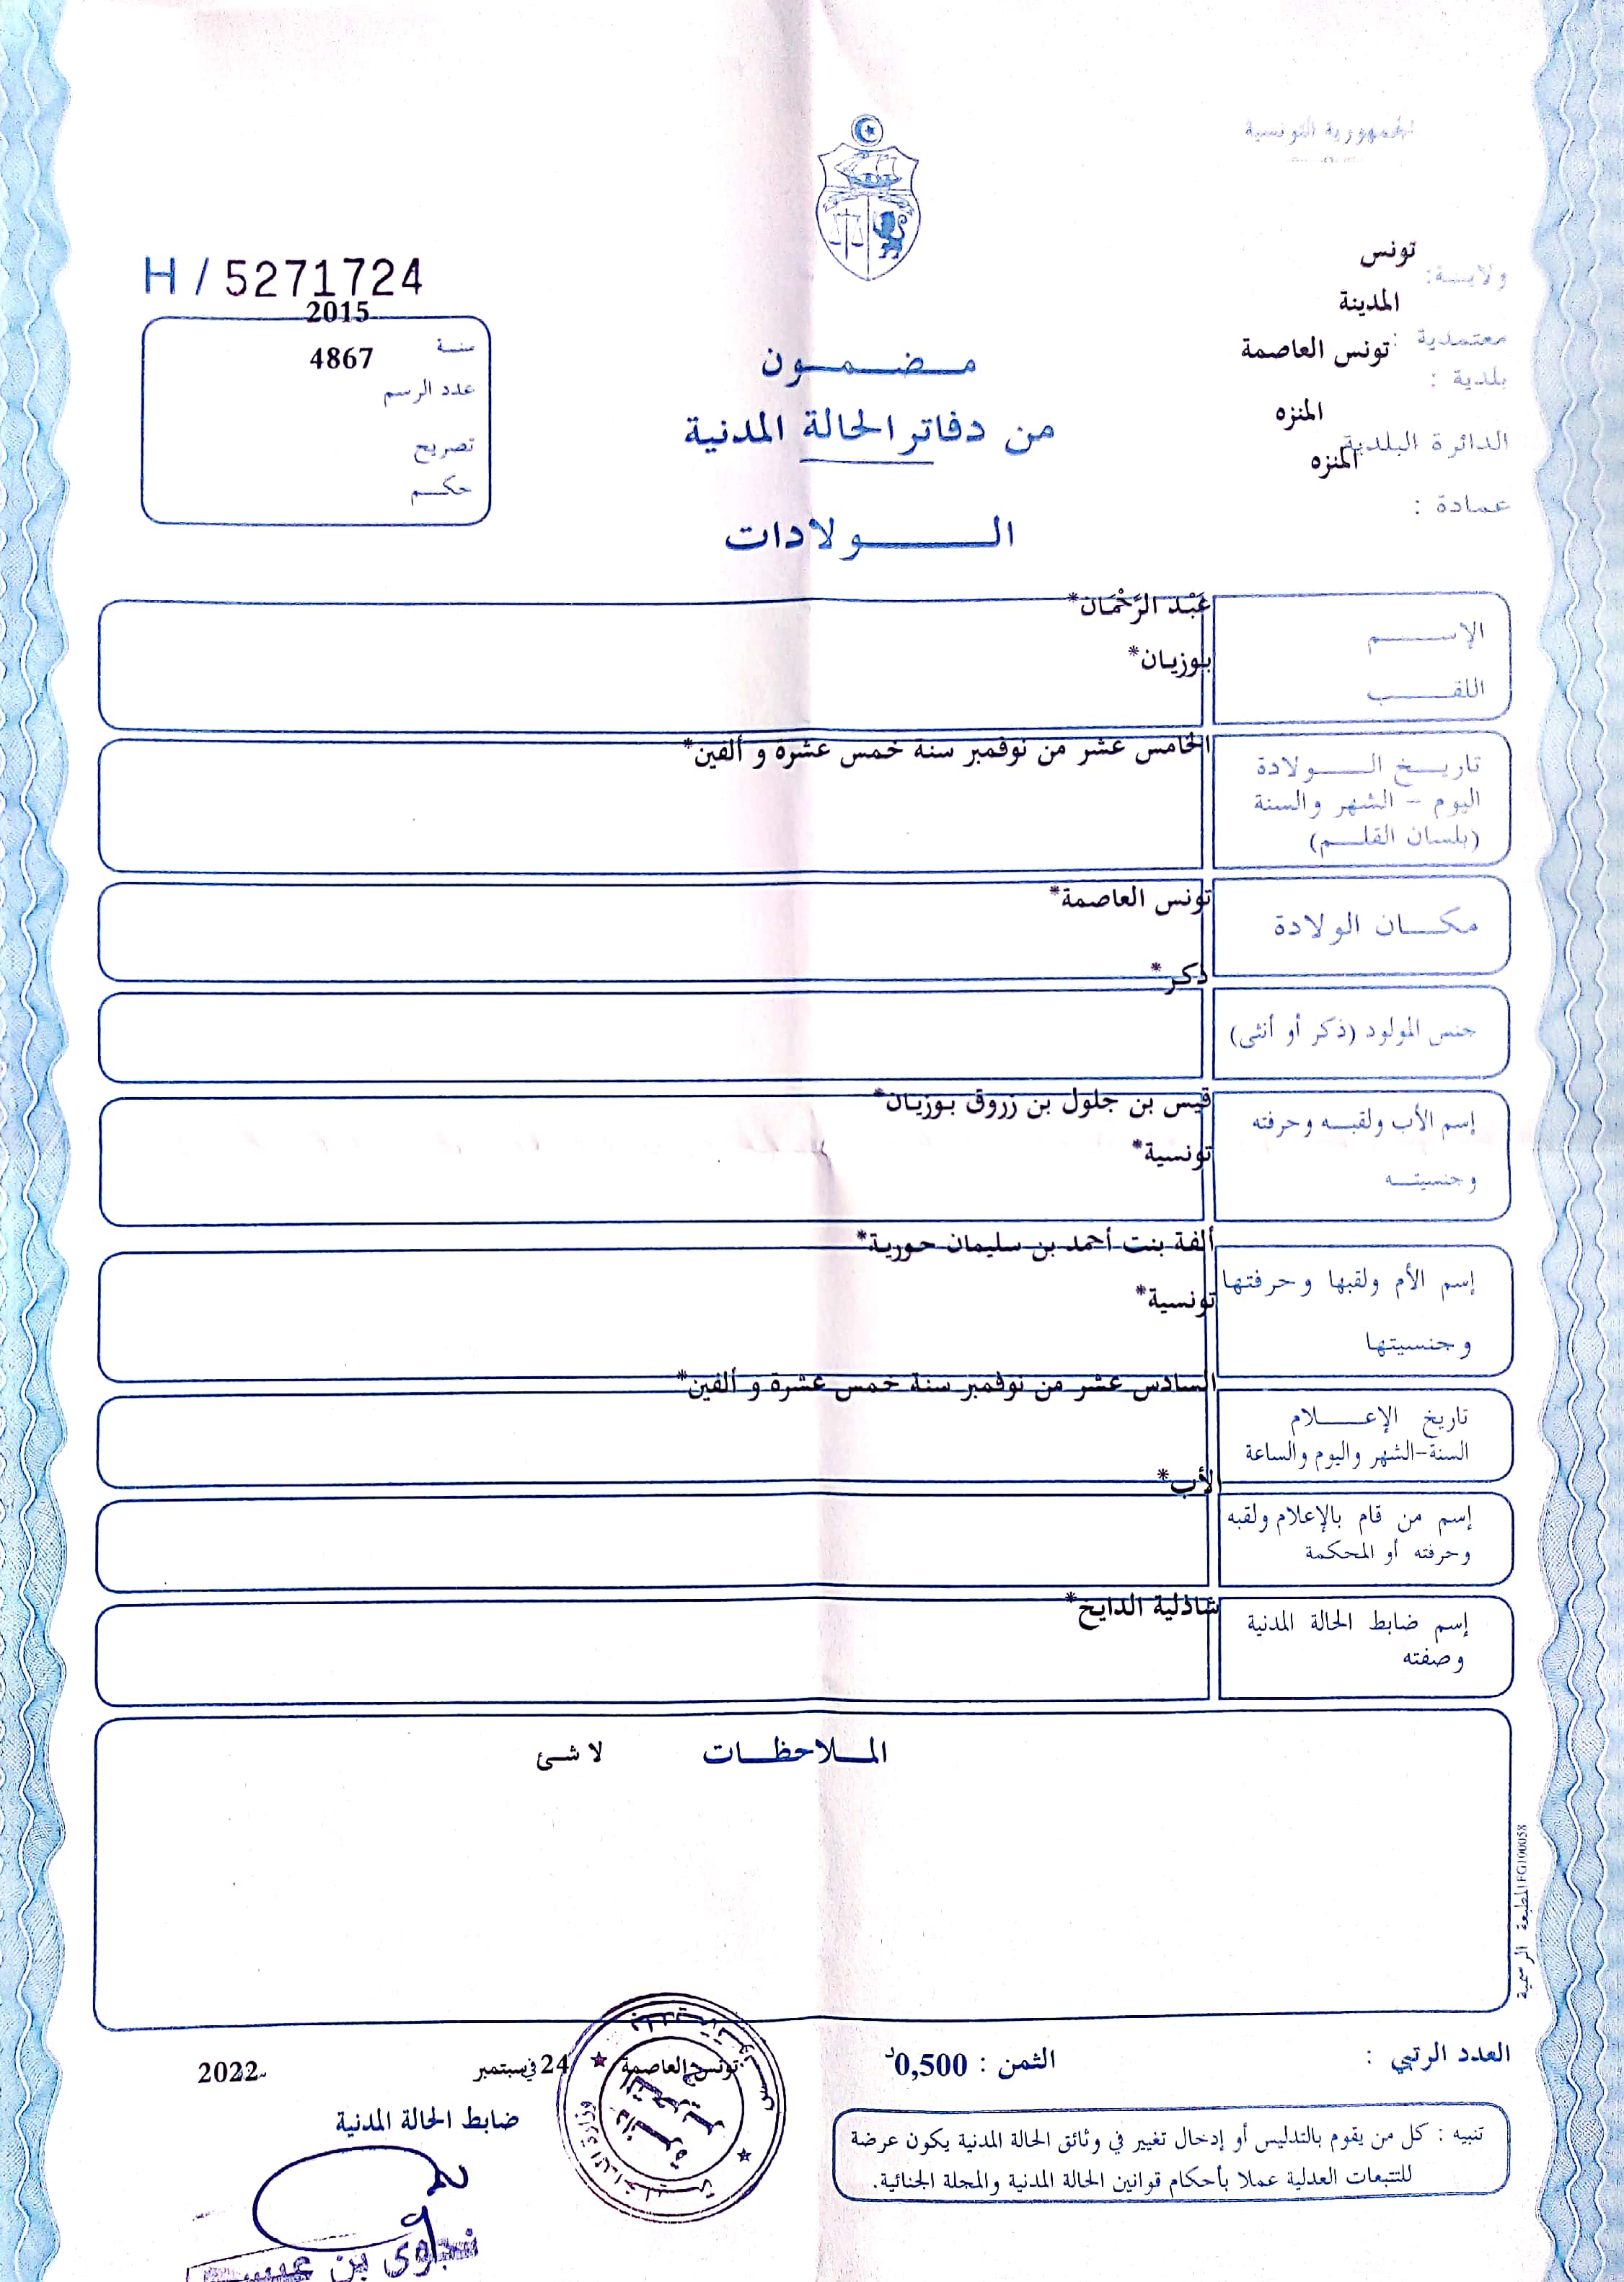 الجمهورية التونسية
ولايـــة: تونس
معتمدية : المدينة
بلدية : تونس العاصمة
الدائرة البلدية المنزه
عمادة : المنزه
H / 5271724
سنـة 2015
عدد الرسم 4867
تصريح
حكـــم
مـــضـــمـــون
من دفاتر الحالة المدنية
الـــــولادات
الإســـــم عَبْد الرَّحْمَان*
اللقـــب بوزيان*
تاريـــخ الـــــولادة الخامس عشر من نوفمبر سنة خمس عشرة و ألفين*
اليوم - الشهر والسنة
(بلسان القلـــم)
مكـــان الولادة تونس العاصمة*
جنس المولود (ذكر أو أنثى) ذكر*
إسم الأب ولقبـــه وحرفته قيس بن جلول بن زروق بوزيان*
وجنسيتـــه تونسية*
إسم الأم ولقبها وحرفتها ألفة بنت أحمد بن سليمان حورية*
وجنسيتها تونسية*
تاريخ الإعـــــلام السادس عشر من نوفمبر سنة خمس عشرة و ألفين*
السنة-الشهر واليوم والساعة
إسم من قام بالإعلام ولقبه الأب*
وحرفته أو المحكمة
إسم ضابط الحالة المدنية شاذلية الدايخ*
وصفته
المـــلاحظـــات لا شئ
المطبعة الرسمية FG100058
العدد الرتبي :
الثمن : 0,500د
تونس العاصمة في 24 سبتمبر 2022
ضابط الحالة المدنية
تنبيه : كل من يقوم بالتدليس أو إدخال تغيير في وثائق الحالة المدنية يكون عرضة
للتتبعات العدلية عملا بأحكام قوانين الحالة المدنية والمجلة الجنائية.
وزارة الداخلية
نجوى بن